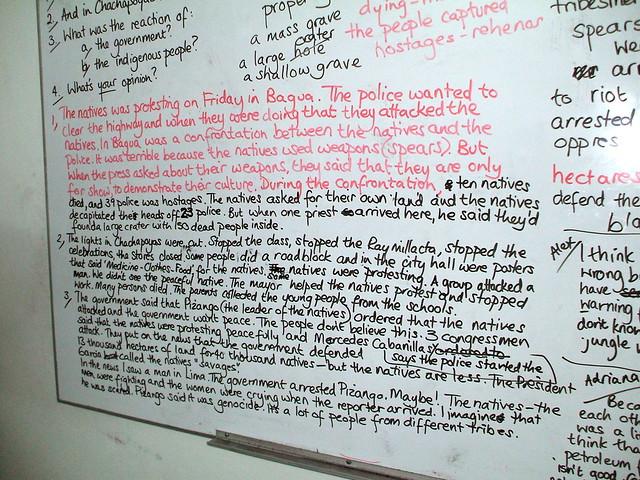 2. And in Chachapoyas
3. What was the reaction of:
a. the government?
b. the indigenous people?
4. What's your opinion?
proper
a mass grave
crater
a large hole
a shallow grave
dying-
the people captured
hostages - rehenes
1, The natives was protesting on Friday in Bagua. The police wanted to
clear the highway and when they were doing that they attacked the
natives. In Bagua was a confrontation between the natives and the
police. It was terrible because the natives used weapons (spears). But
when the press asked about their weapons, they said that they are only
for show, to demonstrate their culture. During the confrontation, ten natives
died, and 39 police was hostages. The natives asked for their own land and the natives
decapitated their heads off 23 police. But when one priest arrived here, he said they'd
found a large crater with 150 dead people inside.
2, The lights in Chachapoyas were cut. Stopped the class, stopped the Raymillacta, stopped the
celebrations, the stores closed. Some people did a roadblock and in the city hall were posters
that said "Medicine-Clothes-Food" for the natives. Some natives were protesting. A group attacked a
man. We didn't see the peaceful native. The mayor helped the natives protest and stopped
work. Many persons died. The parents collected the young people from the schools.
3, The government said that Pizango (the leader of the natives) ordered that the natives
attacked and the government want peace. The people don't believe this. 3 congressmen
said that the natives were protesting peacefully and Mercedes Cabanilla says the police started the
attack. They put on the news that the government defended
13 thousand hectares of land for 40 thousand natives - but the natives are less. The President
Garcia called the natives "savages"
In the news I saw a man in Lima. The government arrested Pizango. Maybe! The natives - the
men were fighting and the women were crying when the reporter arrived. I imagine that
he was scared. Pizango said it was genocide. It's a lot of people from different tribes.
spears
we
to riot
arrested
oppres
hectares
defend the
bla
I think
wrong b
have
warning
don't know
jungle
Adriana
Beca
each oth
was a li
think tha
petroleum
isn't good